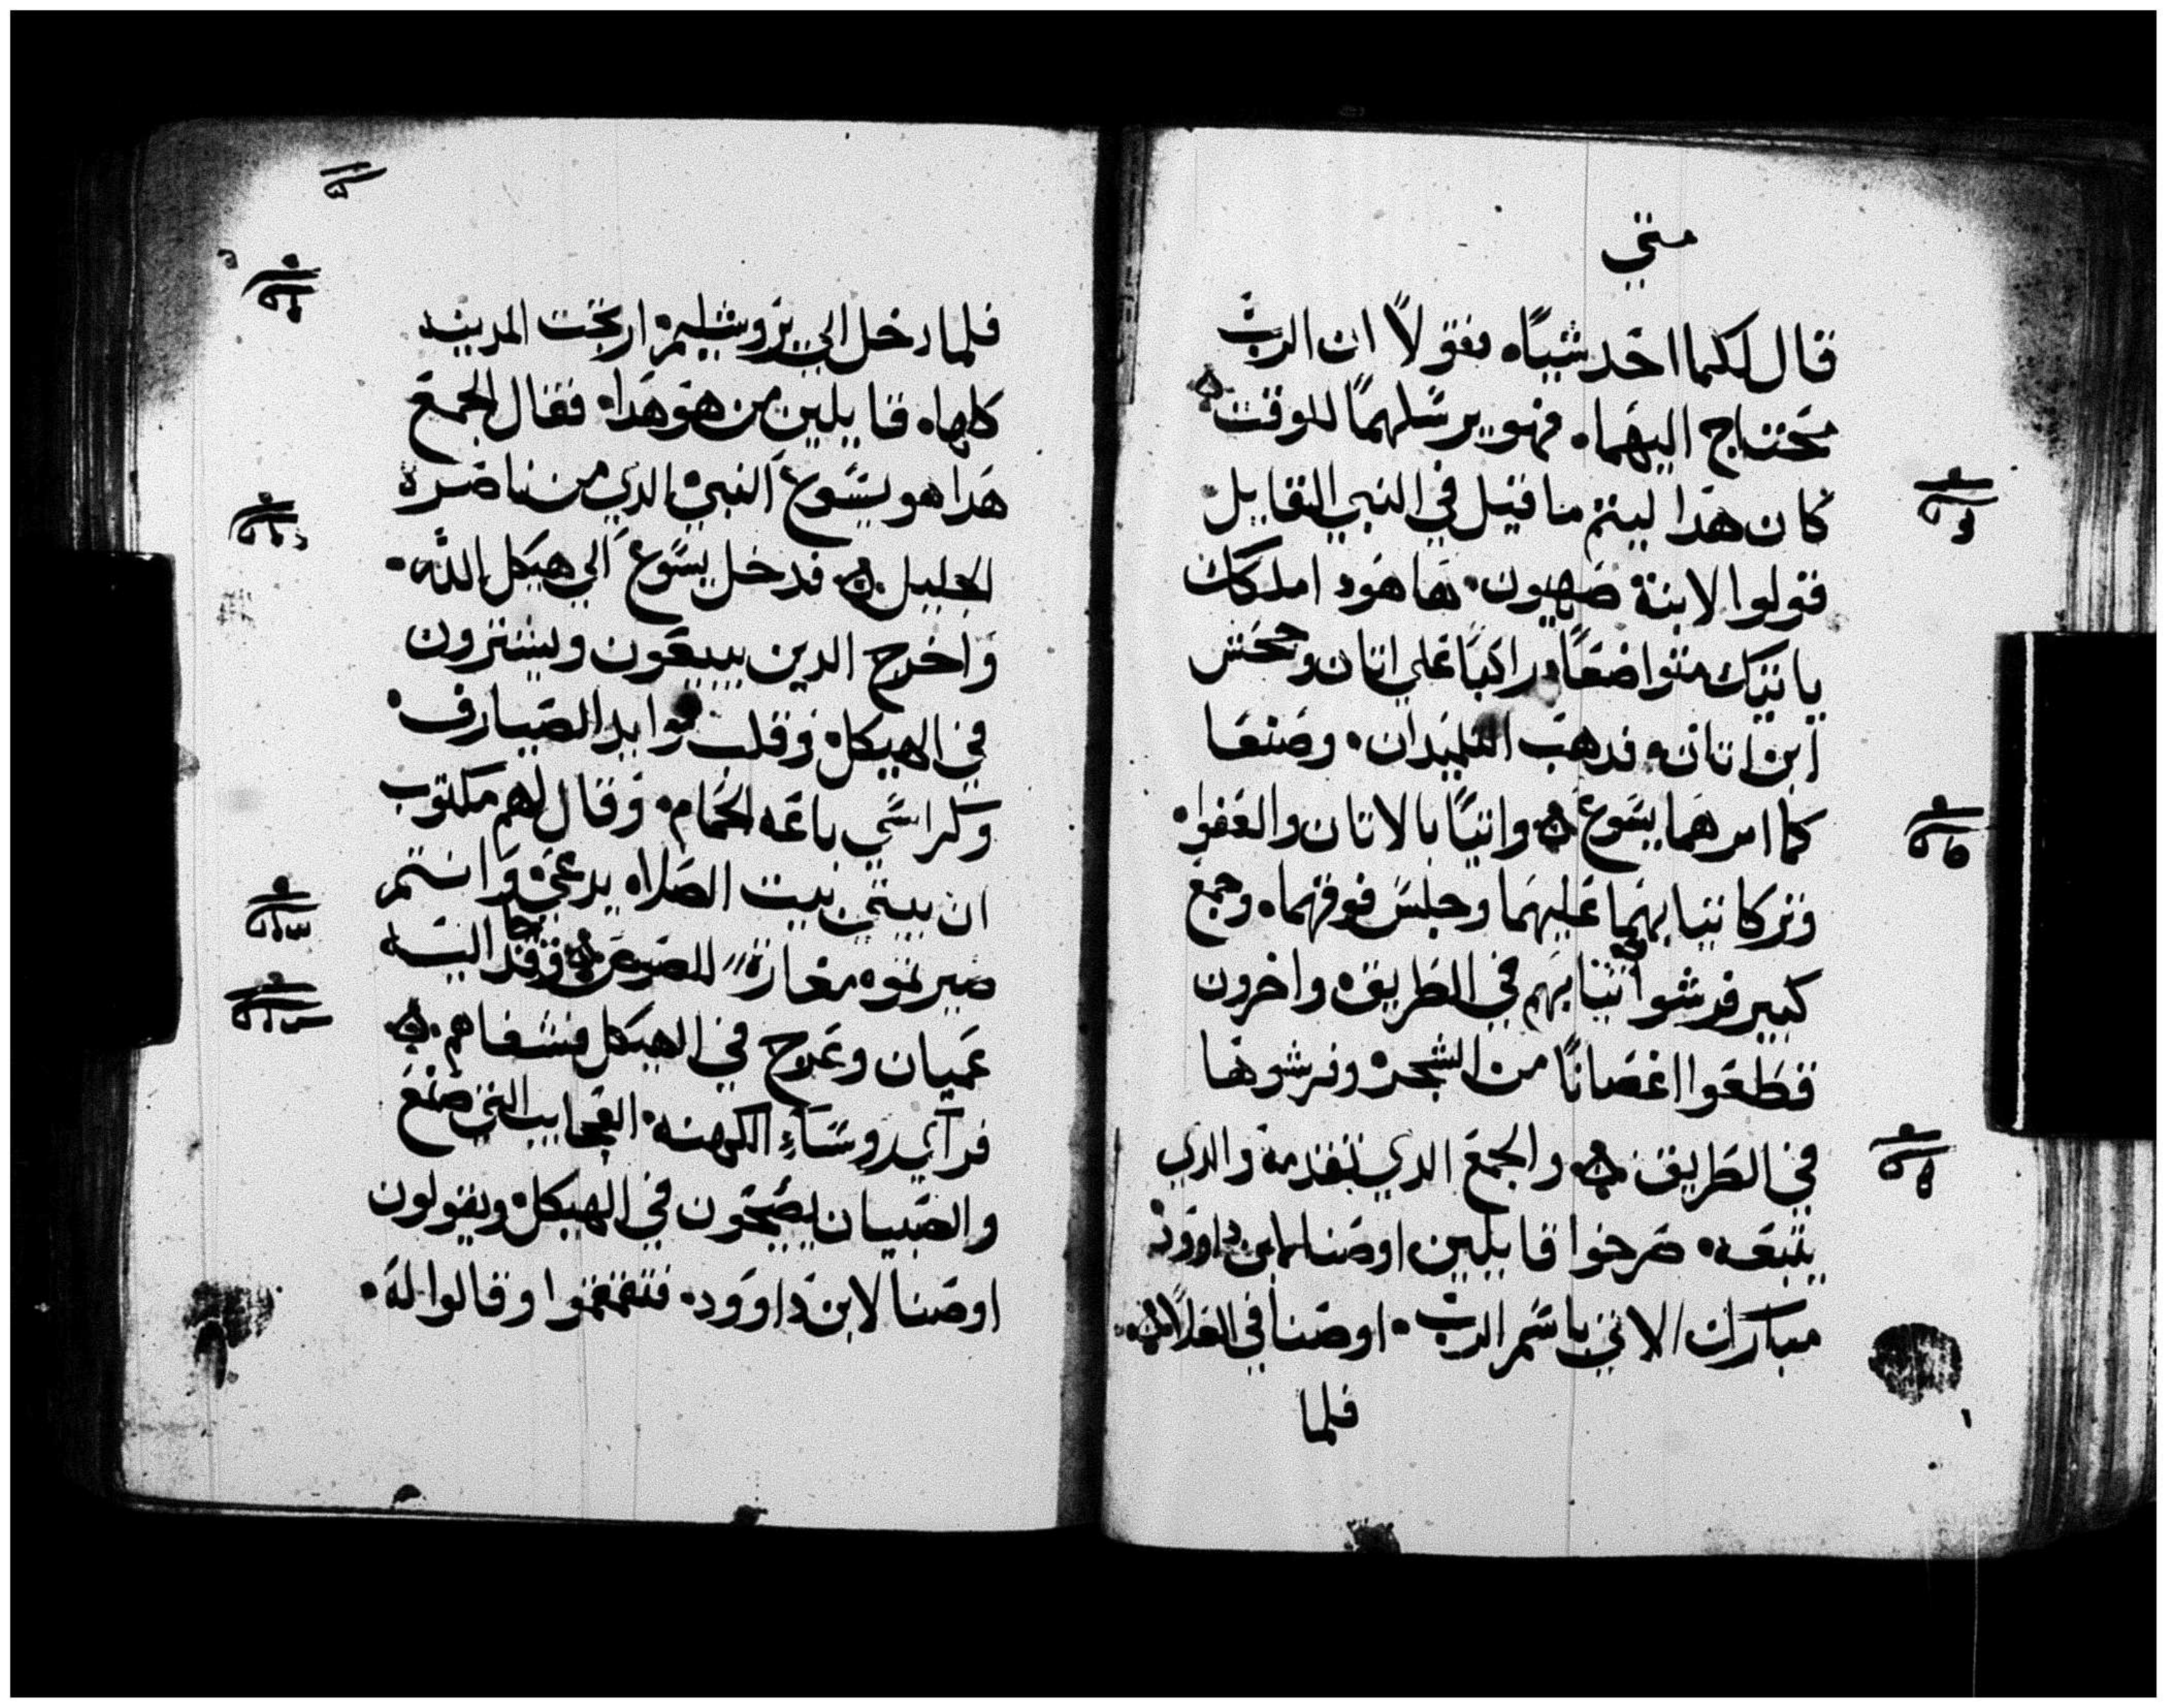 متي
قال لكما احد شياه فقولا ان الرب
محتاج اليهما فهو يرسلهما للوقت
كان هدا ليتم ما قيل في النبي القايل
قولوا لابنة صهيون ها هود املكك
ياتيك متواضعا وراكبا علي اتان وجحش
ابن اتان فدهب التلميدان وصنعا
كما امرهما يسوع واتيا بالاتان والعفوا
وتركا تيابهما عليهما وجلس فوقهما وجمع
كبير فرشوا تيابهم في الطريق واخرون
قطعوا اغصانا من الشجر وفرشوها
في الطريق والجمع الدي تقدمه والدي
يتبعه صرخوا قايلين اوصنا لابن داوود
مبارك الاتي باسم الرب اوصنا في العلا
فلما
فلما دخل الي يروشليم ارتجت المدينه
كلها قايلين من هو هدا فقال الجمع
هدا هو يسوع النبي الدي من ناصرة
الجليل فدخل يسوع الي هيكل الله
واخرج الدين يبيعون ويشترون
في الهيكل وقلب موايد الصيارف
وكراسي باعه الحمام وقال لهم مكتوب
ان بيتي بيت الصلاه يدعي وانتم
صيرتموه مغارة للصوص وقدم اليه
عميان وعرج في الهيكل فشفاهم
فرآي روساء الكهنه العجايب التي صنع
والصبيان يصيحون في الهيكل ويقولون
اوصنا لابن داوود فتقمقموا وقالوا له